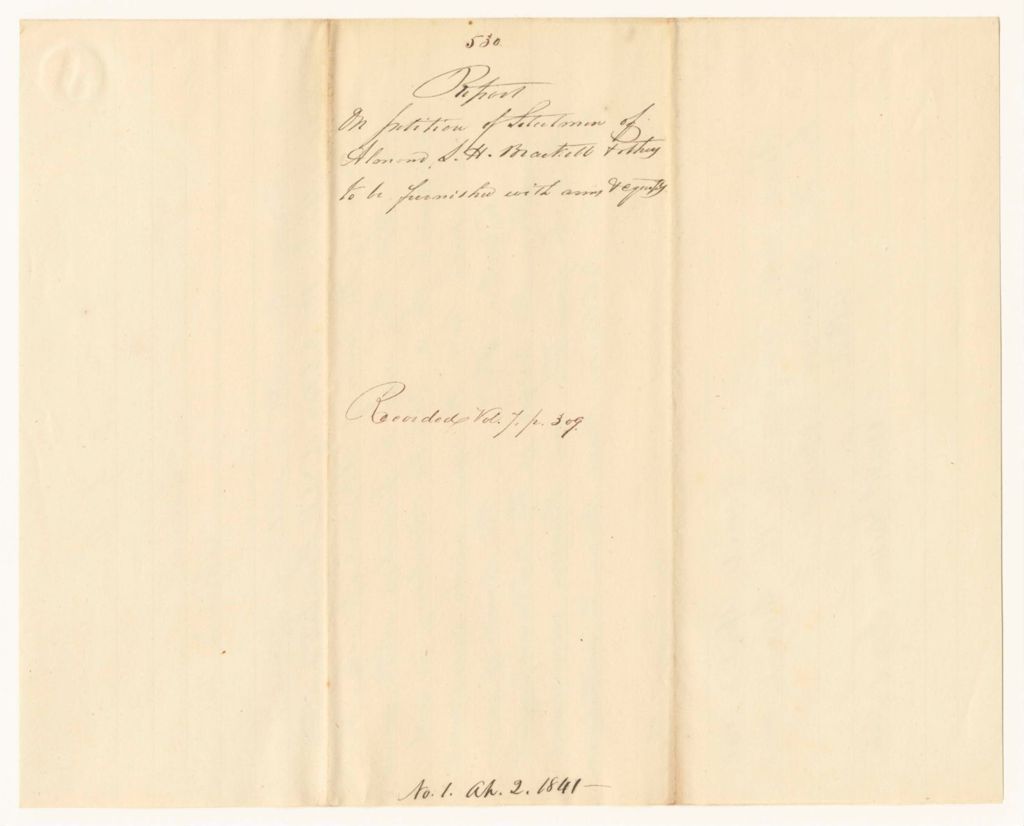 530.
Report
On petition of Selectmen of
Almond, S. H. Brackett & others
to be furnished with arms &
Recorded Vol. 7. p. 309.
No. 1. Ah. 2. 1841 —